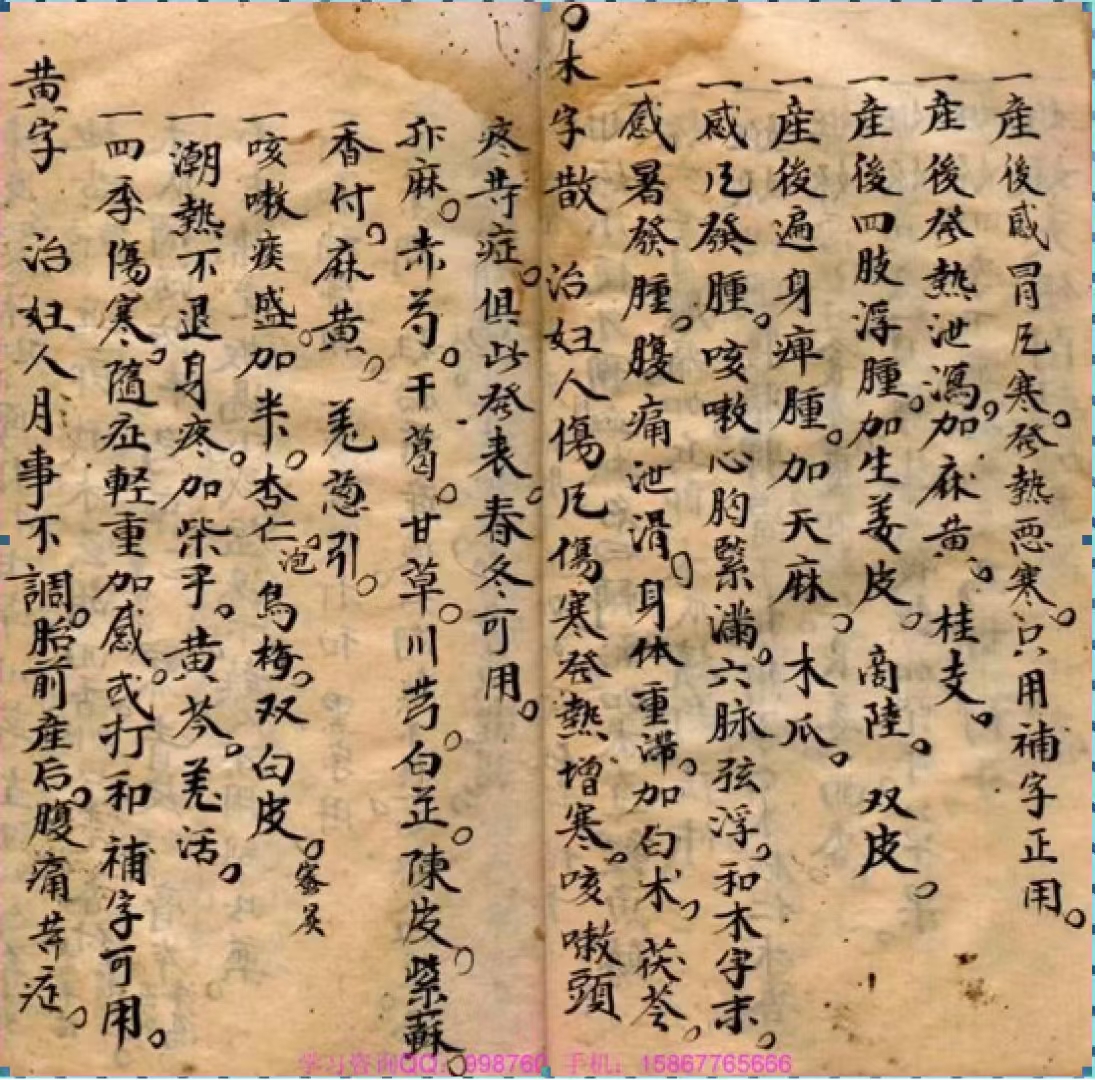 一産後感冒兄寒。發熱恶寒。只用補字正用。
一産後發熱泄瀉。加麻黄。桂支。
一産後四肢浮腫。加生姜皮。商陸。双皮。
一産後遍身痺腫。加天麻。木瓜。
一感兄發腫。咳嗽心胸緊滿。六脉弦浮。和木字末。
一感暑發腫。腹痛泄滑。身体重滞。加白术。茯苓。
〇木字散 治妇人傷兄傷寒發熱增寒。咳嗽頭
疼等症。俱此發表。春冬可用。
升麻。赤芍。干葛。甘草。川芎。白芷。陳皮。紫蘇。
香付。麻黄。羌葱引。
一咳嗽痰盛。加半。杏仁泡。烏梅。双白皮。
一潮熱不退身疼。加柴乎。黄芩。羌活。
一四季傷寒。隨症軽重加感。或打和補字可用。
黄字 治妇人月事不調。胎前産后。腹痛等症。
学习咨询QQ：998760 手机：15867765666